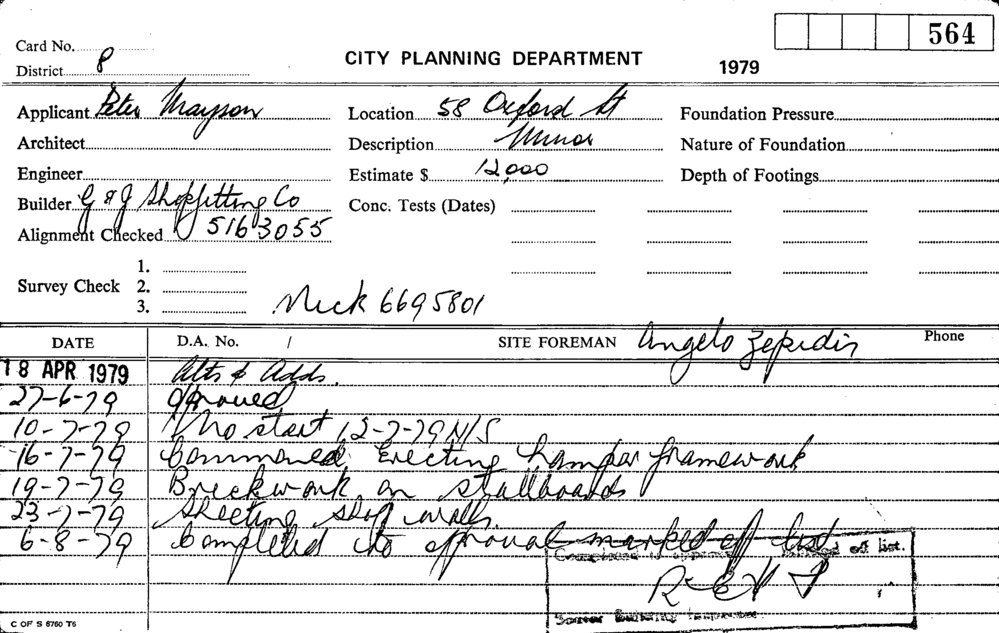 564
Card No.
CITY PLANNING DEPARTMENT
District 8
1979
Applicant Peter Mayson Location 58 Oxford St Foundation Pressure
Architect Description Minor Nature of Foundation
Engineer Estimate $ 12,000 Depth of Footings
Builder G & J Shopfitting Co Conc. Tests (Dates)
Alignment Checked 5163055
1.
Survey Check 2.
3. Nick 6695801
DATE D.A. No. / SITE FOREMAN Angelo Phone
18 APR 1979 Alts & Adds.
27-6-79 Approved
10-7-79 No start 12-7-79 N/S
16-7-79 Commenced Erecting hamper framework
19-7-79 Brickwork on stallboards
23-7-79 Sheeting shop walls.
6-8-79 Completed to approval marked off list
Completed to approval marked off list.
Senior Building Inspector
C OF S 6760 T6